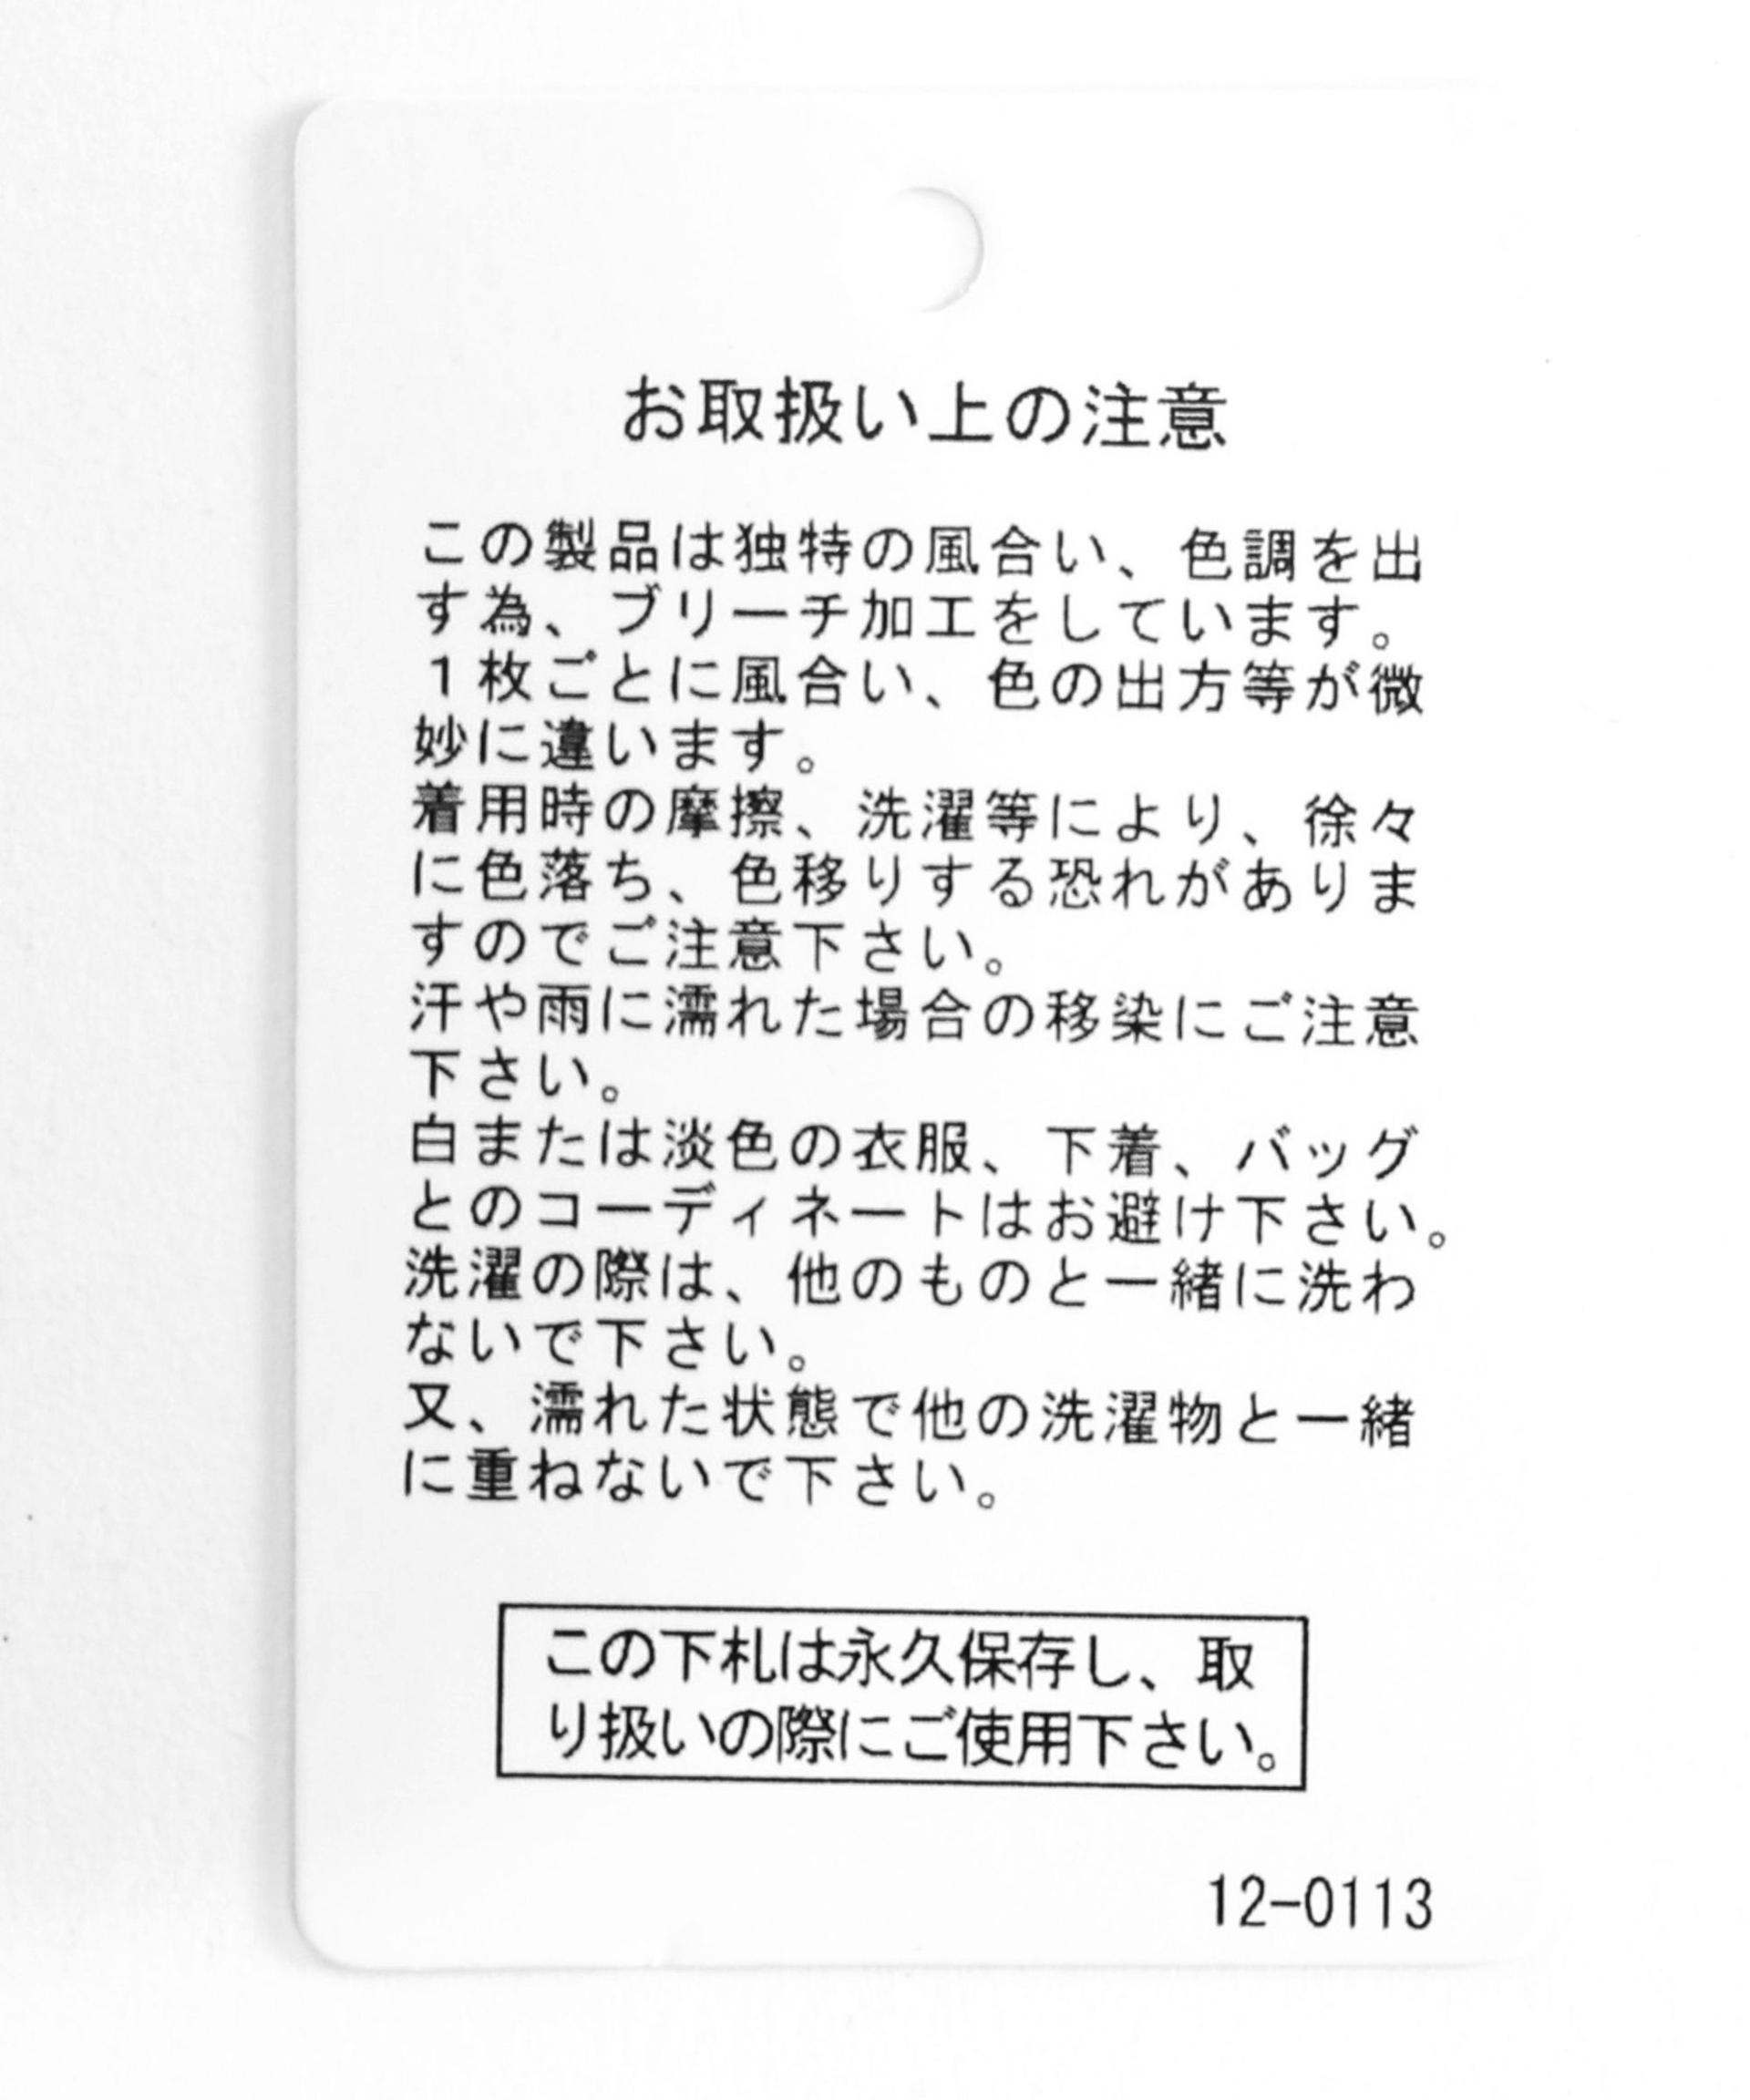 お取扱い上の注意
この製品は独特の風合い、色調を出
す為、ブリーチ加工をしています。
１枚ごとに風合い、色の出方等が微
妙に違います。
着用時の摩擦、洗濯等により、徐々
に色落ち、色移りする恐れがありま
すのでご注意下さい。
汗や雨に濡れた場合の移染にご注意
下さい。
白または淡色の衣服、下着、バッグ
とのコーディネートはお避け下さい。
洗濯の際は、他のものと一緒に洗わ
ないで下さい。
又、濡れた状態で他の洗濯物と一緒
に重ねないで下さい。
この下札は永久保存し、取
り扱いの際にご使用下さい。
12-0113